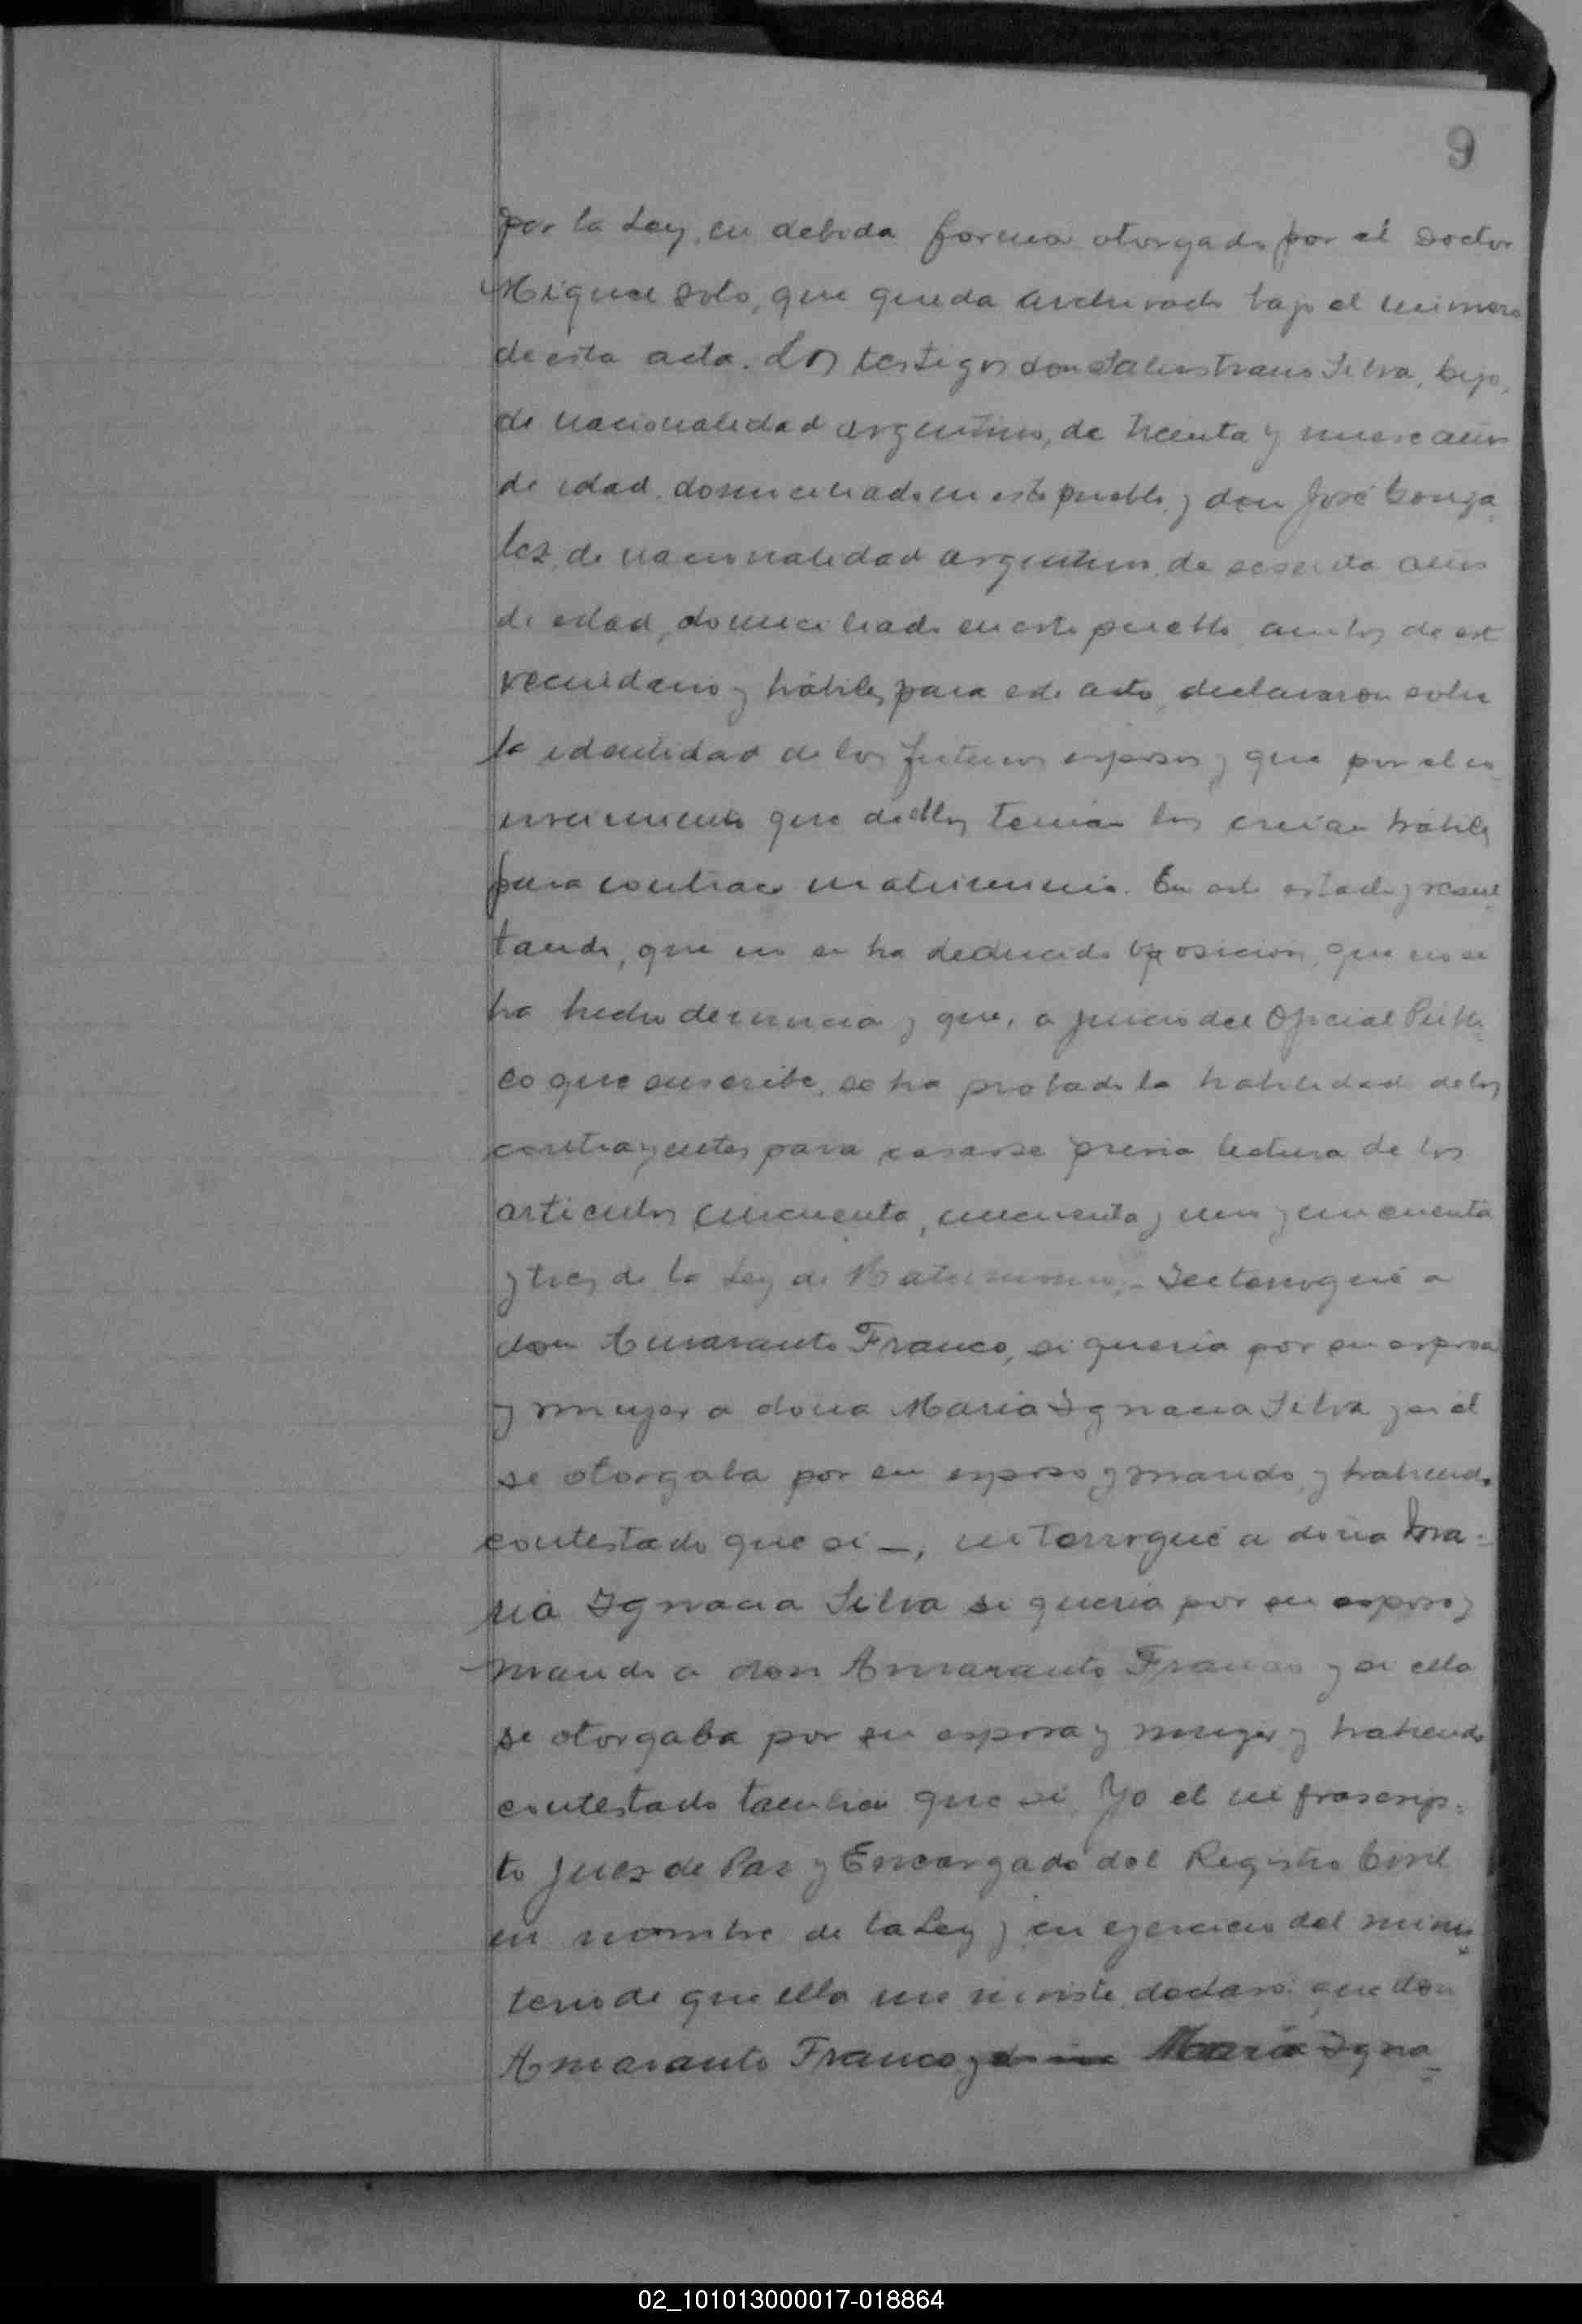 9
por la Ley, en debida forma otorgado por el Doctor
Miguel Soto, que queda archivado bajo el número
de esta acta. Los testigos don Salustiano Silva, hijo,
de nacionalidad argentino, de treinta y nueve años
de edad, domiciliado en este pueblo, y don José Gonza
lez, de nacionalidad argentino, de sesenta años
de edad, domiciliado en este pueblo, ambos de est
vecindario y hábiles para este acto, declararon sobre
la identidad de los futuros esposos y que por el co
nocimiento que de ellos tenían los creían hábiles
para contraer matrimonio. En este estado y resul
tando, que no se ha deducido oposición, que no se
ha hecho denuncia y que, a juicio del Oficial Públi
co que suscribe, se ha probado la habilidad de los
contrayentes para casarse previa lectura de los
articulos cincuenta, cincuenta y uno y cincuenta
y tres de la Ley de Matrimonio,- Interrogué a
don Amaranto Franco, si quería por su esposa
y mujer a doña María Ignacia Silva y si él
se otorgaba por su esposo y marido, y habiendo
contestado que si -, interrogué a doña Ma-
ría Ignacia Silva si quería por su esposo y
marido a don Amaranto Franco y si ella
se otorgaba por su esposa y mujer y habiendo
contestado también que si, Yo el infrascrip-
to Juez de Paz y Encargado del Registro Civil
en nombre de la Ley y en ejercicio del minis
terio de que ella me inviste, declaro: que don
Amaranto Franco y María Igna-
02_101013000017-018864